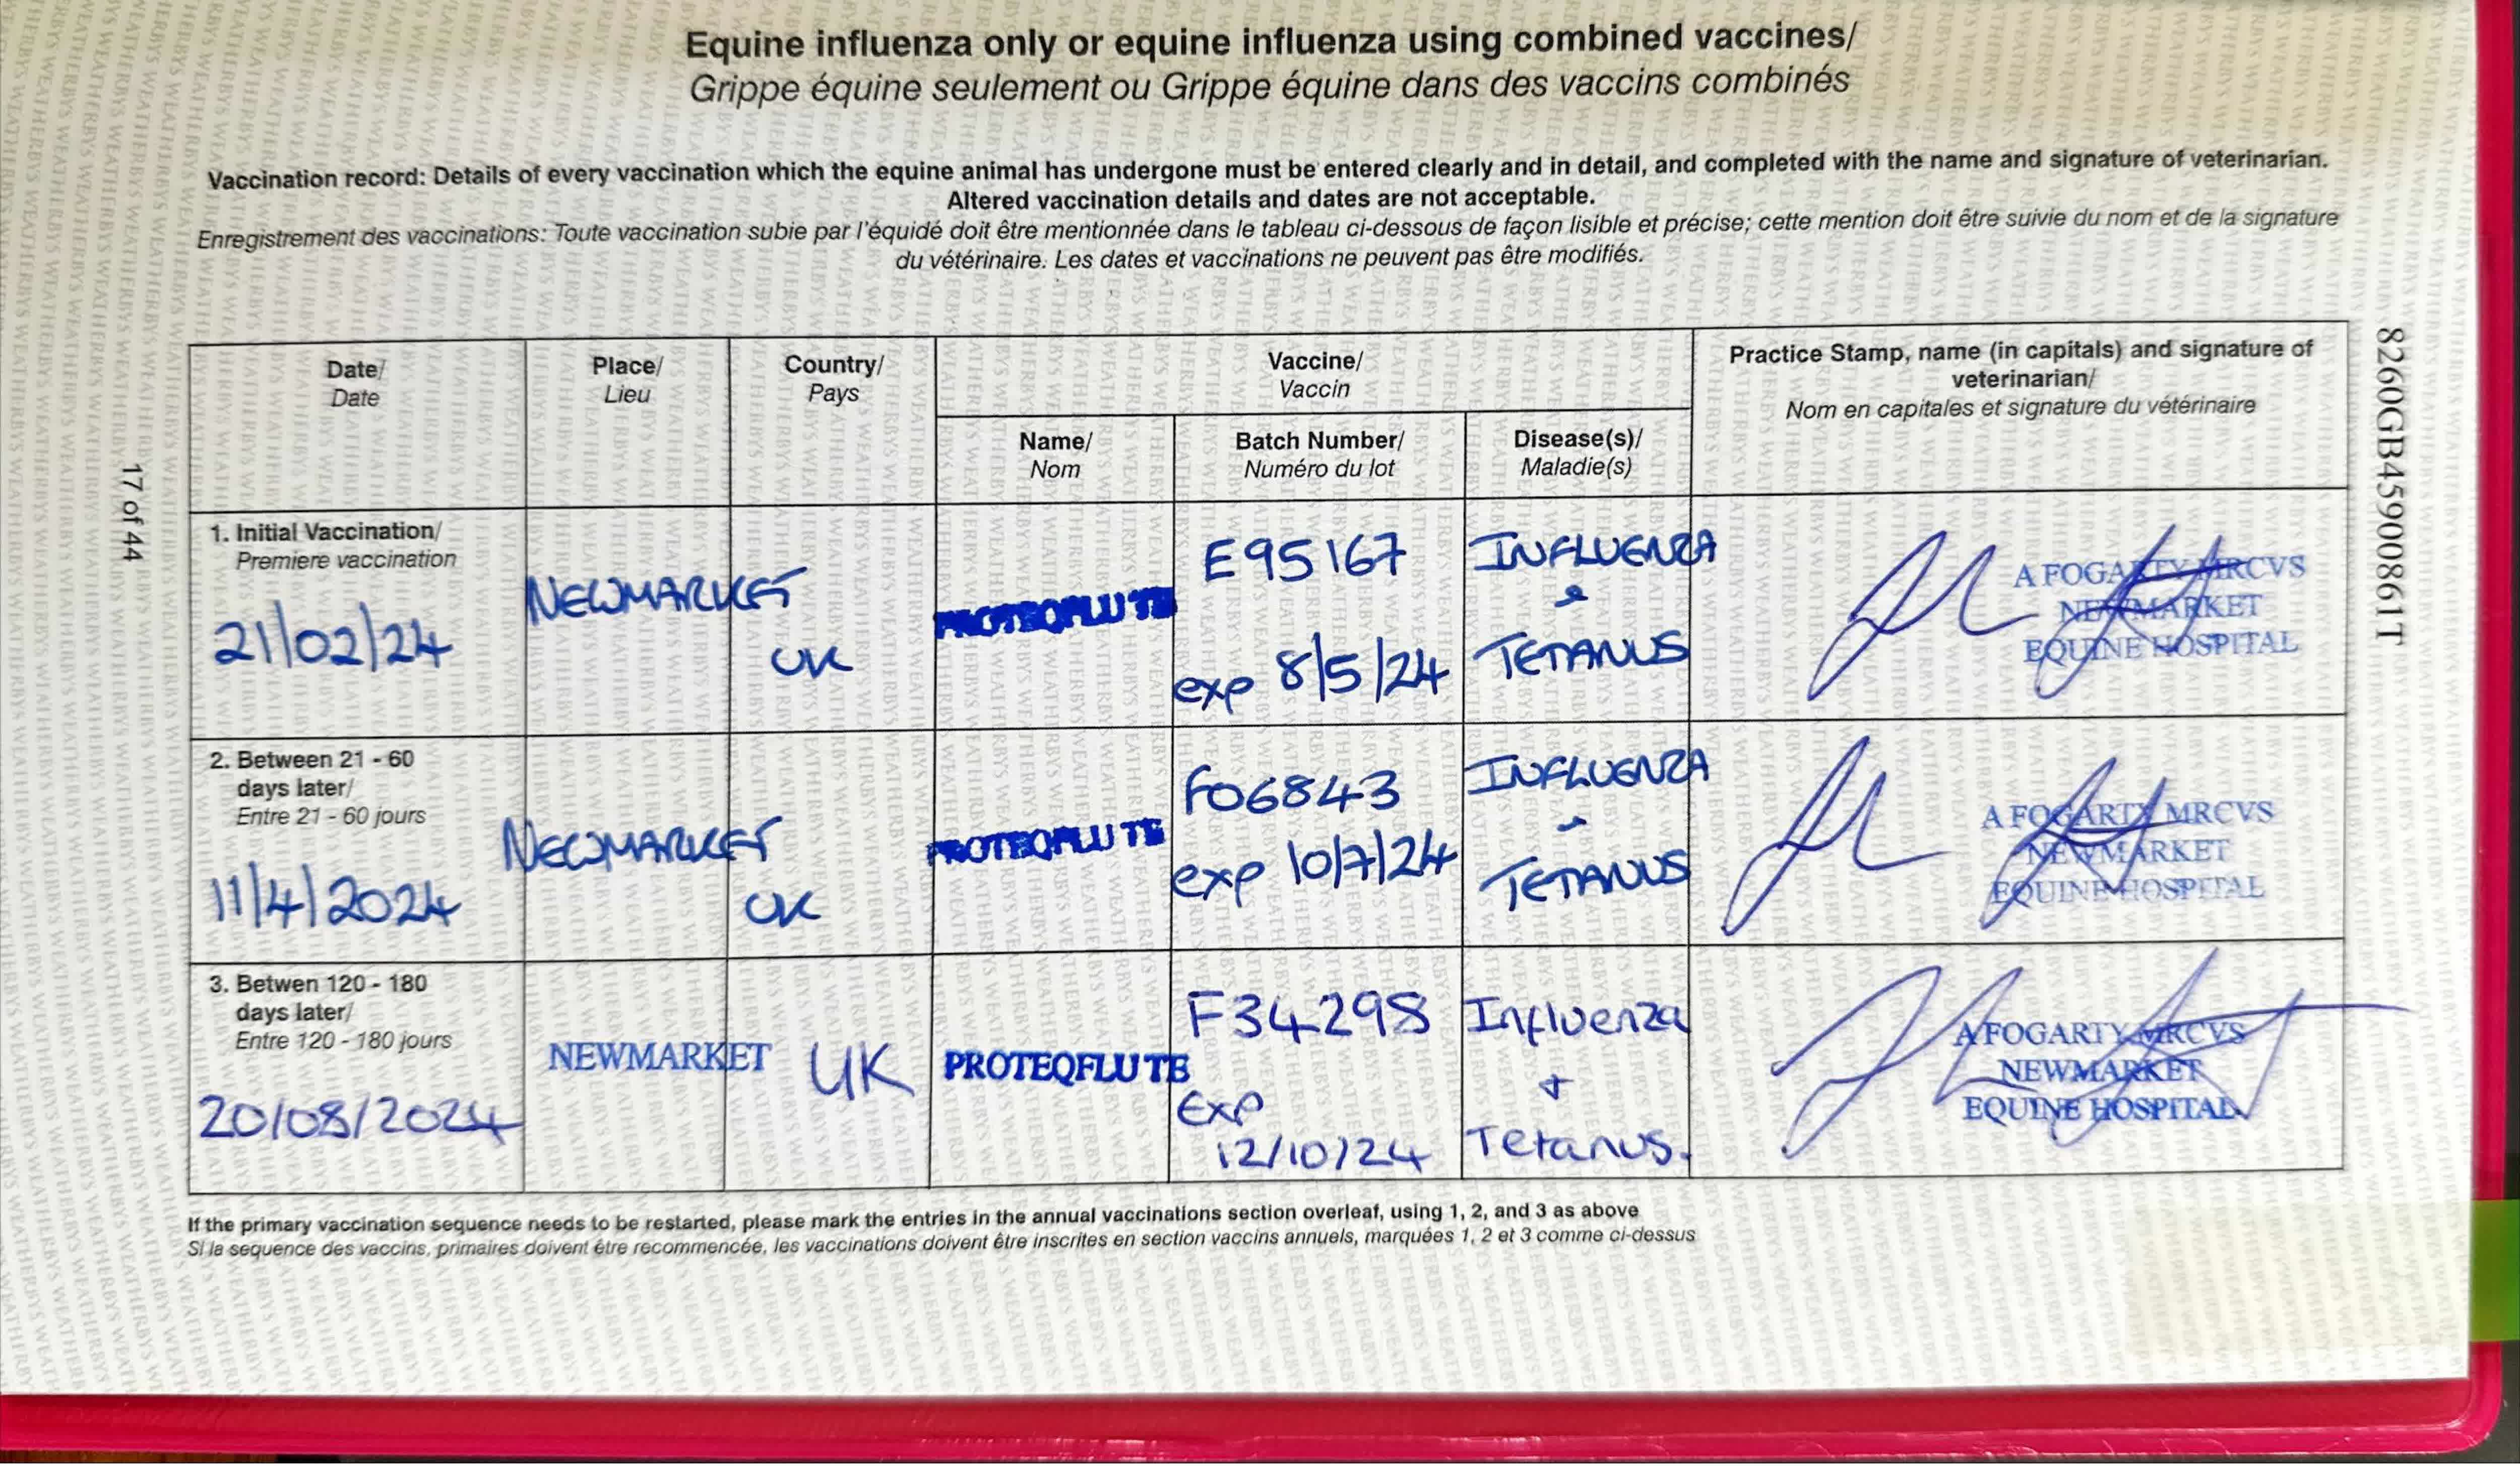 Equine influenza only or equine influenza using combined vaccines/
Grippe équine seulement ou Grippe équine dans des vaccins combinés
Vaccination record: Details of every vaccination which the equine animal has undergone must be entered clearly and in detail, and completed with the name and signature of veterinarian.
Altered vaccination details and dates are not acceptable.
Enregistrement des vaccinations: Toute vaccination subie par l'équidé doit être mentionnée dans le tableau ci-dessous de façon lisible et précise; cette mention doit être suivie du nom et de la signature
du vétérinaire. Les dates et vaccinations ne peuvent pas être modifiés.
Date/
Date
Place/
Lieu
Country/
Pays
Vaccine/
Vaccin
Name/
Nom
Batch Number/
Numéro du lot
Disease(s)/
Maladie(s)
Practice Stamp, name (in capitals) and signature of
veterinarian/
Nom en capitales et signature du vétérinaire
1. Initial Vaccination/
Premiere vaccination
21/02/24
NEWMARKET
UK
PROTEQFLU TE
E95167
exp 8/5/24
INFLUENZA
&
TETANUS
A FOGARTY MRCVS
NEWMARKET
EQUINE HOSPITAL
2. Between 21 - 60
days later/
Entre 21 - 60 jours
11/4/2024
NEWMARKET
UK
PROTEQFLU TE
F06843
exp 10/7/24
INFLUENZA
TETANUS
A FOGARTY MRCVS
NEWMARKET
EQUINE HOSPITAL
3. Betwen 120 - 180
days later/
Entre 120 - 180 jours
20/08/2024
NEWMARKET
UK
PROTEQFLU TE
F34298
Exp
12/10/24
Influenza
+
Tetanus.
A FOGARTY MRCVS
NEWMARKET
EQUINE HOSPITAL
If the primary vaccination sequence needs to be restarted, please mark the entries in the annual vaccinations section overleaf, using 1, 2, and 3 as above
Si la sequence des vaccins, primaires doivent être recommencée, les vaccinations doivent être inscrites en section vaccins annuels, marquées 1, 2 et 3 comme ci-dessus
17 of 44
8260GB45900861T
WEATHERBYS